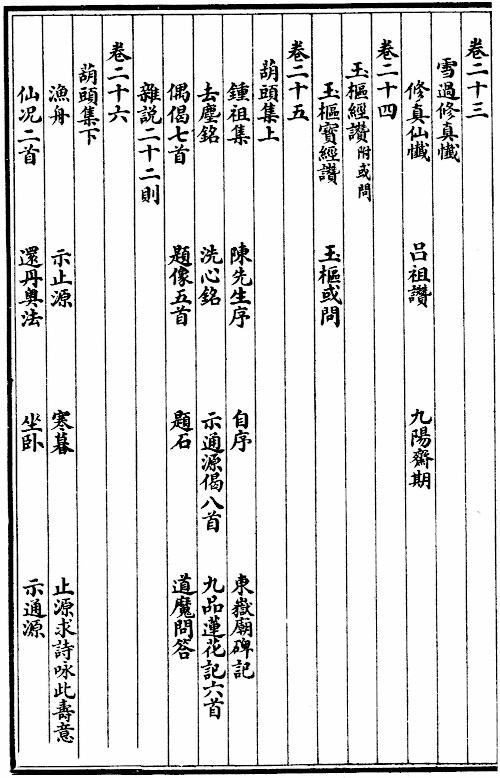 卷二十三
雪過修真懺
修真仙懺 呂祖讚 九陽齋期
卷二十四
玉樞經讚附或問
玉樞寶經讚 玉樞或問
卷二十五
葫頭集上
鍾祖集 陳先生序 自序 東嶽廟碑記
去塵銘 洗心銘 示通源偈八首 九品蓮花記六首
偶偈七首 題像五首 題石 道魔問答
雜説二十二則
卷二十六
葫頭集下
漁舟 示止源 寒暮 止源求詩咏此壽意
仙况二首 還丹奥法 坐卧 示通源